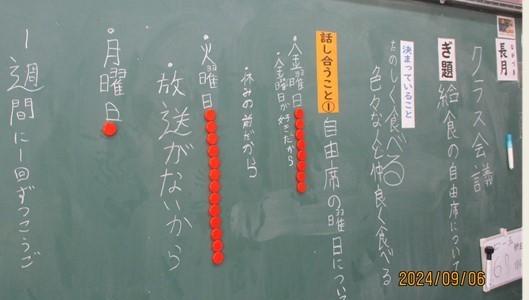 ながつき
長月
クラス会議
ぎ題
給食の自由席について
決まっていること
たのしく食べる
色々な人と仲良く食べる
話し合うこと①
自由席の曜日につい
・金曜日
・金曜日が好きだから
休みの前だから
・火曜日
・放送がないから
・月曜日
1週間に1回ずつこうご
2024/09/06